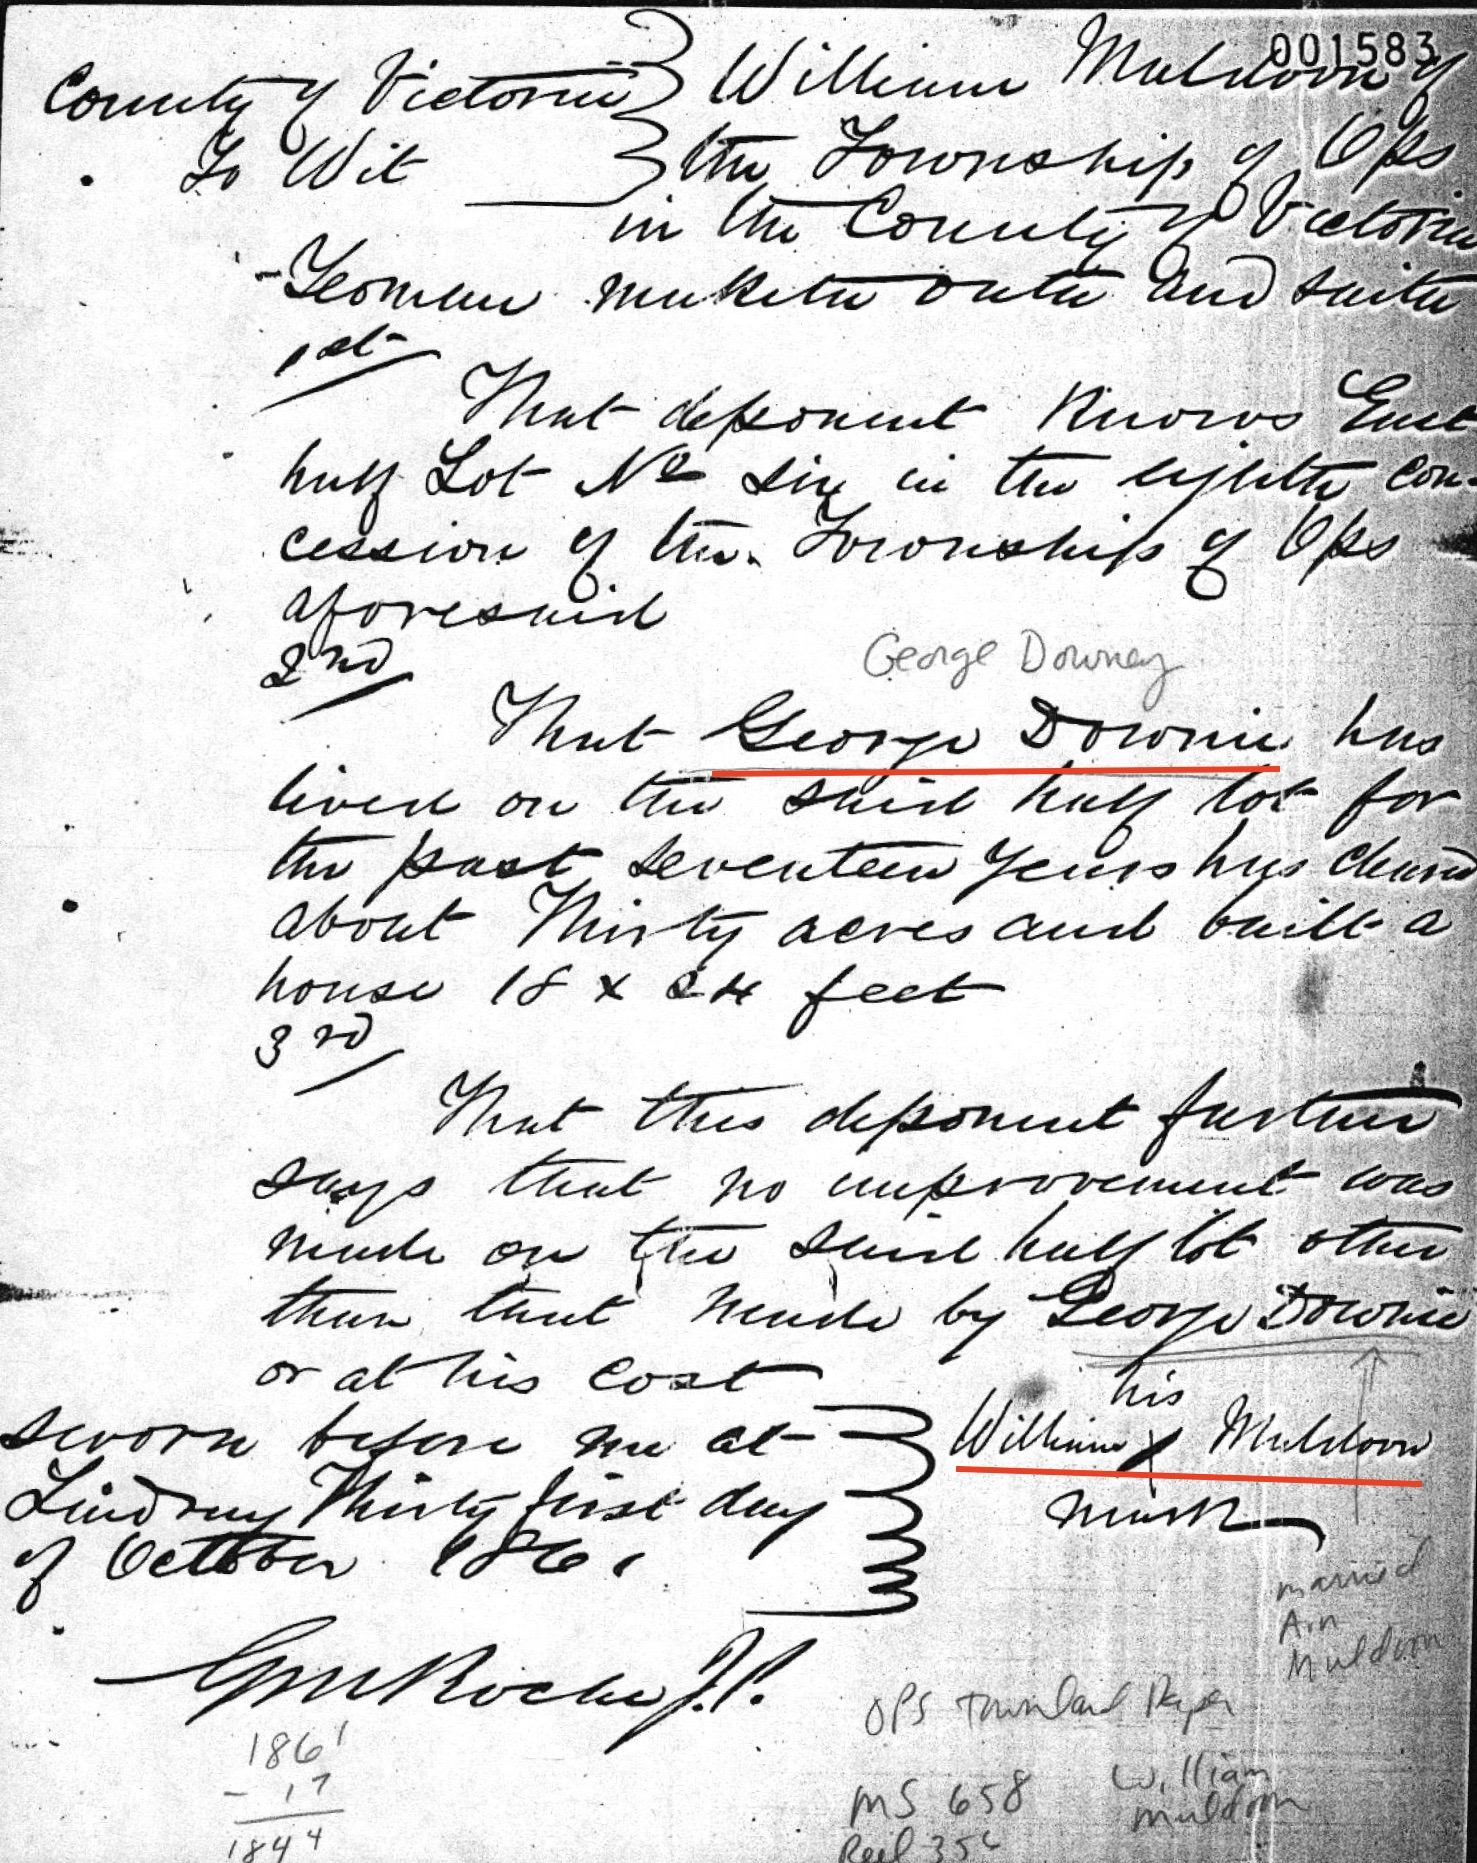 001583
County of Victoria } William Muldoon of
To Wit } the Township of Ops
in the County of Victoria
Yeoman maketh oath and saith
1st
That deponent Knows East
half Lot No six in the eighth con-
cession of the Township of Ops
aforesaid
2nd
George Downey
That George Downie has
lived on the said half lot for
the past seventeen years has cleared
about Thirty acres and built a
house 18 x 24 feet
3rd
That this deponent further
says that no improvement was
made on the said half lot other
than that made by George Downie
or at his cost
sworn before me at
Lindsay Thirty first day
of October 1861
his
William X Muldoon
mark
married
Ann
Muldoon
GM Roche J.P.
OPS Township Paper
1861
- 17
1844
MS 658
Reel 35
William
Muldoon